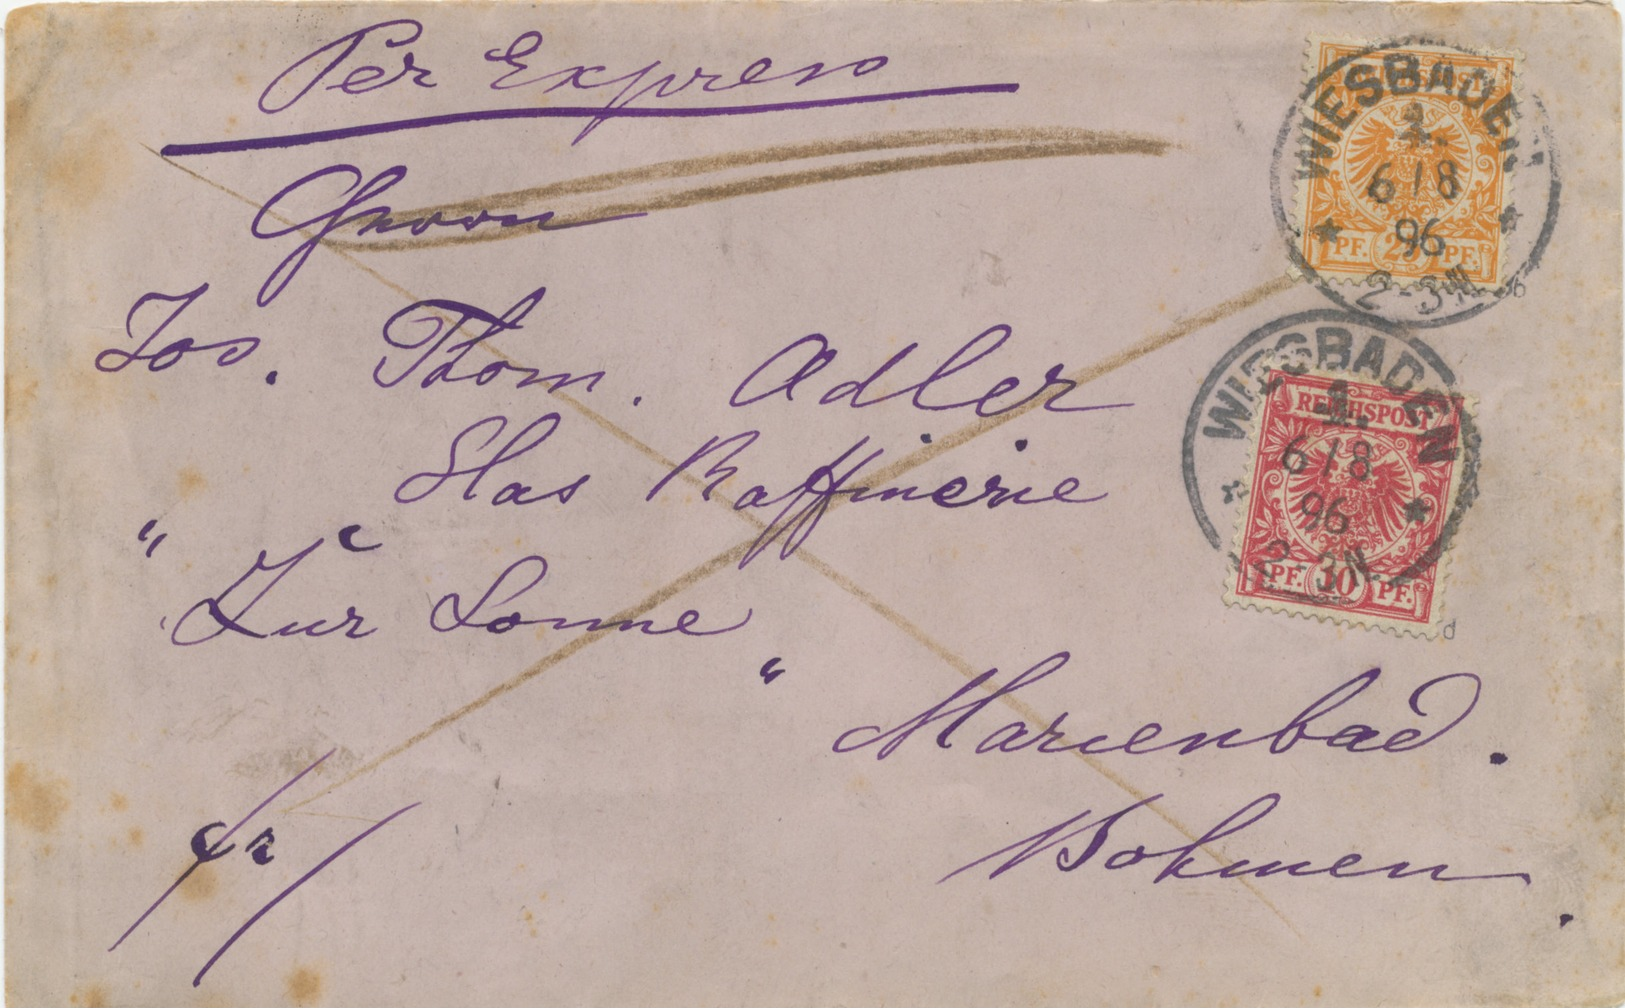 Per Express
Herrn
Jos. Thom. Adler
Glas Raffinerie
"Zur Sonne"
Marienbad.
Böhmen.
fr/
WIESBADEN
1.
6/8
96
2-3N
PF. 25 PF.
WIESBADEN
REICHSPOST
1.
6/8
96
2-3N
PF. 10 PF.
b
d